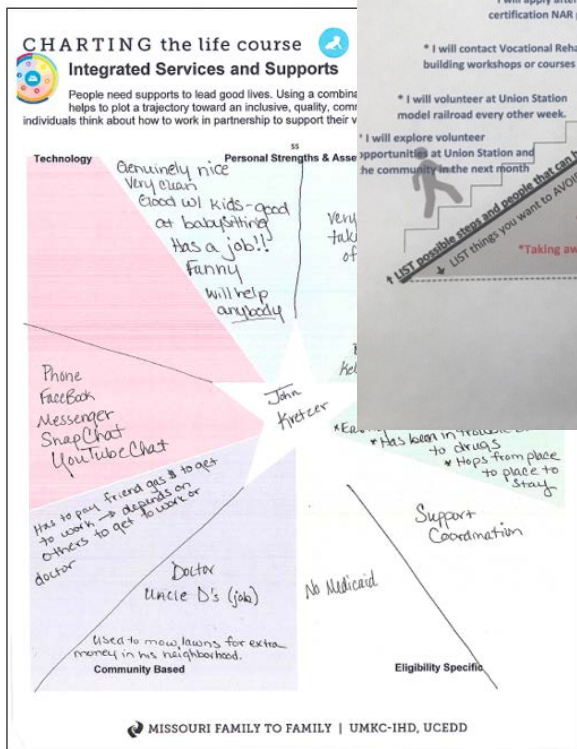 CHARTING the life course
Integrated Services and Supports
People need supports to lead good lives. Using a combina
helps to plot a trajectory toward an inclusive, quality, comm
individuals think about how to work in partnership to support their v
Technology
ss
Personal Strengths & Asse
Genuinely nice
Very clean
Good w/ kids-good
at babysitting
Has a job!!
Funny
will help
anybody
very
taki
of
Kel
Phone
FaceBook
Messenger
SnapChat
YouTubeChat
John
Kretzer
to drugs
* Hops from place
to place to
stay
Has to pay friend gas $ to get
to work → depends on
others to get to work or
doctor
Doctor
Uncle D's (job)
Used to mow lawns for extra
money in his neighborhood.
Community Based
No Medicaid
Support
Coordination
Eligibility Specific
MISSOURI FAMILY TO FAMILY | UMKC-IHD, UCEDD
I will apply after
certification NAR
* I will contact Vocational Reha
building workshops or courses
* I will volunteer at Union Station
model railroad every other week.
* I will explore volunteer
opportunities at Union Station and
he community in the next month
LIST possible steps and people that can h
LIST things you want to AVOI
*Taking aw